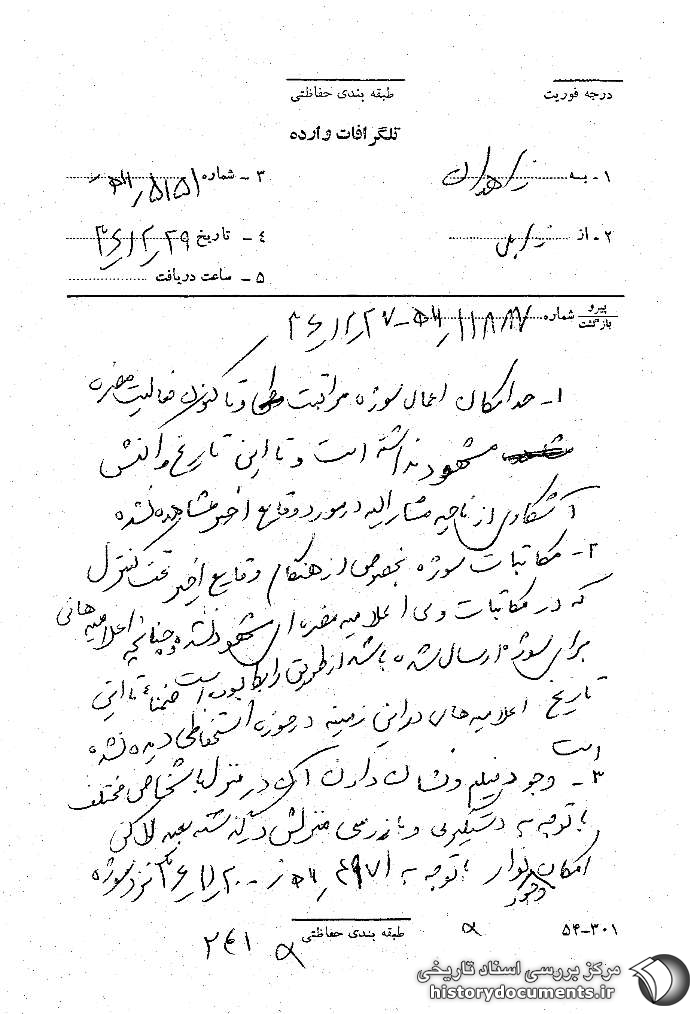 درجه فوریت
طبقه بندی حفاظتی
تلگرافات وارده
۱- به زاهدان
۳ - شماره ۵۱۵۱/ﻫ۱
۲- از زابل
۴ - تاریخ ۳۶/۲/۲۹
۵ - ساعت دریافت
پیرو
بازگشت
شماره ۱۱۸۸۷/ﻫ۱ - ۳۶/۲/۲۷
۱- حد امکان اعمال سوژه مراقبت و تاکنون فعالیت مضره
مشهود نداشته است و تا این تاریخ واکنش
آشکاری از ناحیه مشارالیه در مورد وقایع اخیر مشاهده نشده
۲- مکاتبات سوژه بخصوص از هنگام وقایع اخیر تحت کنترل
که در مکاتبات وی اعلامیه مضره ای مشهود نشده و چنانچه اعلامیه هائی
برای سوژه ارسال شده باشد از طریق رابط بوده است ضمناً تا این
تاریخ اعلامیه های در این زمینه در حوزه استحفاظی دیده نشده
است
۳- وجود فیلم و نشان دادن آن در منزل باشخاص مختلف
با توجه به دستگیری و بازرسی منزلش در گذشته بعید لاکن
امکان وجود نوار با توجه به نزد سوژه
۵۴-۳۰۱
طبقه بندی حفاظتی
۲۴۱
مرکز بررسی اسناد تاریخی
historydocuments.ir